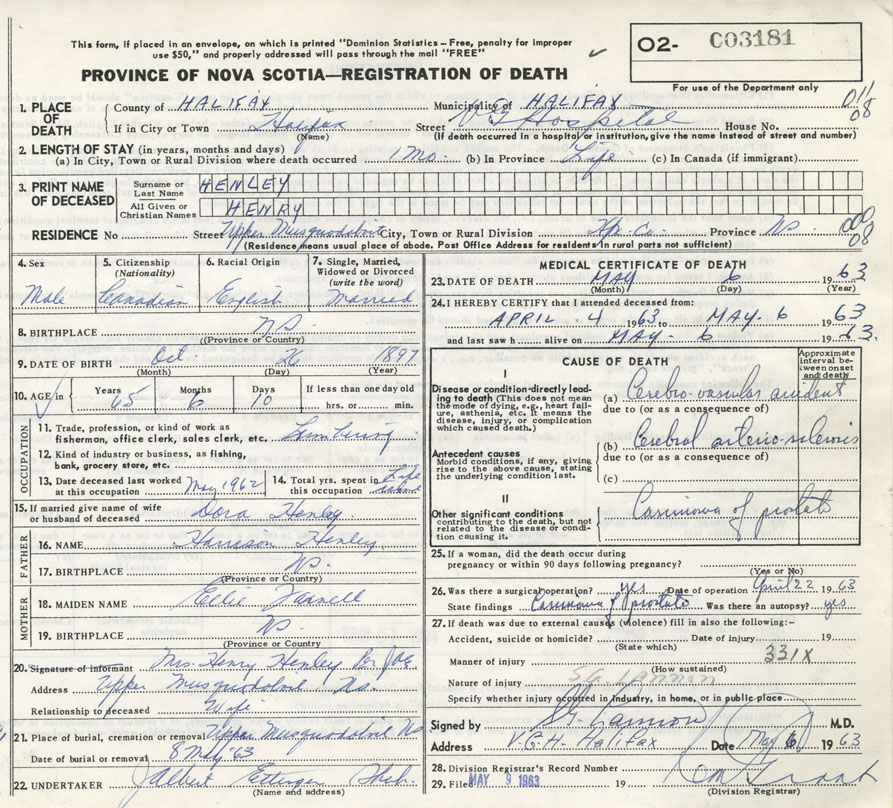 This form, if placed in an envelope, on which is printed "Dominion Statistics – Free, penalty for improper
use $50," and properly addressed will pass through the mail "FREE"
O2- C03181
PROVINCE OF NOVA SCOTIA—REGISTRATION OF DEATH
For use of the Department only
1. PLACE OF DEATH County of HALIFAX Municipality of HALIFAX 011
If in City or Town Halifax Street VG Hospital House No. 08
(Name) (If death occurred in a hospital or institution, give the name instead of street and number)
2. LENGTH OF STAY (in years, months and days)
(a) In City, Town or Rural Division where death occurred 1 Mo. (b) In Province Life (c) In Canada (if immigrant)
3. PRINT NAME OF DECEASED Surname or Last Name HENLEY
All Given or Christian Names HENRY
RESIDENCE No Street Upper Musquodoboit City, Town or Rural Division Hfx. Co. Province NS 000
(Residence means usual place of abode. Post Office Address for residents in rural parts not sufficient) 08
4. Sex Male
5. Citizenship (Nationality) Canadian
6. Racial Origin English
7. Single, Married, Widowed or Divorced (write the word) Married
8. BIRTHPLACE NS.
(Province or Country)
9. DATE OF BIRTH Oct 26 1897
(Month) (Day) (Year)
10. AGE in Years 65 Months 6 Days 10 If less than one day old
hrs. or min.
OCCUPATION
11. Trade, profession, or kind of work as
fisherman, office clerk, sales clerk, etc. Lumbering
12. Kind of industry or business, as fishing,
bank, grocery store, etc.
13. Date deceased last worked at this occupation May 1962 14. Total yrs. spent in this occupation Life
15. If married give name of wife or husband of deceased Dora Henley
FATHER
16. NAME Harrison Henley
17. BIRTHPLACE NS.
(Province or Country)
MOTHER
18. MAIDEN NAME Ellie
19. BIRTHPLACE NS
(Province or Country)
20. Signature of informant Mrs. Henry Henley Per
Address Upper Musquodoboit NS.
Relationship to deceased Wife
21. Place of burial, cremation or removal Upper Musquodoboit NS
Date of burial or removal 8 May '63
22. UNDERTAKER Albert Ettinger
(Name and address)
MEDICAL CERTIFICATE OF DEATH
23. DATE OF DEATH MAY 6 1963
(Month) (Day) (Year)
24. I HEREBY CERTIFY that I attended deceased from:
APRIL - 4 1963 to MAY - 6 1963
and last saw h alive on MAY - 6 1963.
CAUSE OF DEATH
Approximate interval between onset and death
I
Disease or condition directly leading to death (This does not mean the mode of dying, e.g., heart failure, asthenia, etc. It means the disease, injury, or complication which caused death.)
(a) Cerebro-vascular accident
due to (or as a consequence of)
Antecedent causes
Morbid conditions, if any, giving rise to the above cause, stating the underlying condition last.
(b) Cerebral arterio-sclerosis
due to (or as a consequence of)
(c)
II
Other significant conditions
contributing to the death, but not related to the disease or condition causing it.
Carcinoma of prostate
25. If a woman, did the death occur during
pregnancy or within 90 days following pregnancy?
(Yes or No)
26. Was there a surgical operation? yes Date of operation April 22 1963
State findings Carcinoma of prostate Was there an autopsy? yes
27. If death was due to external causes (violence) fill in also the following:–
Accident, suicide or homicide? Date of injury 19
(State which)
Manner of injury 331X
(How sustained)
Nature of injury
Specify whether injury occurred in Industry, in home, or in public place
Signed by M.D.
Address V.G.H. Halifax Date May 6 1963
28. Division Registrar's Record Number
29. Filed MAY 9 1963 19
(Division Registrar)